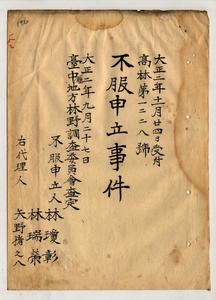 大正二年十一月廿四日受付
高林第一二二八號
不服申立事件
大正二年九月二十七日
臺中地方林野調査委員會査定
不服申立人
林瓊彰
林瑞榮
右代理人
矢野猪之八